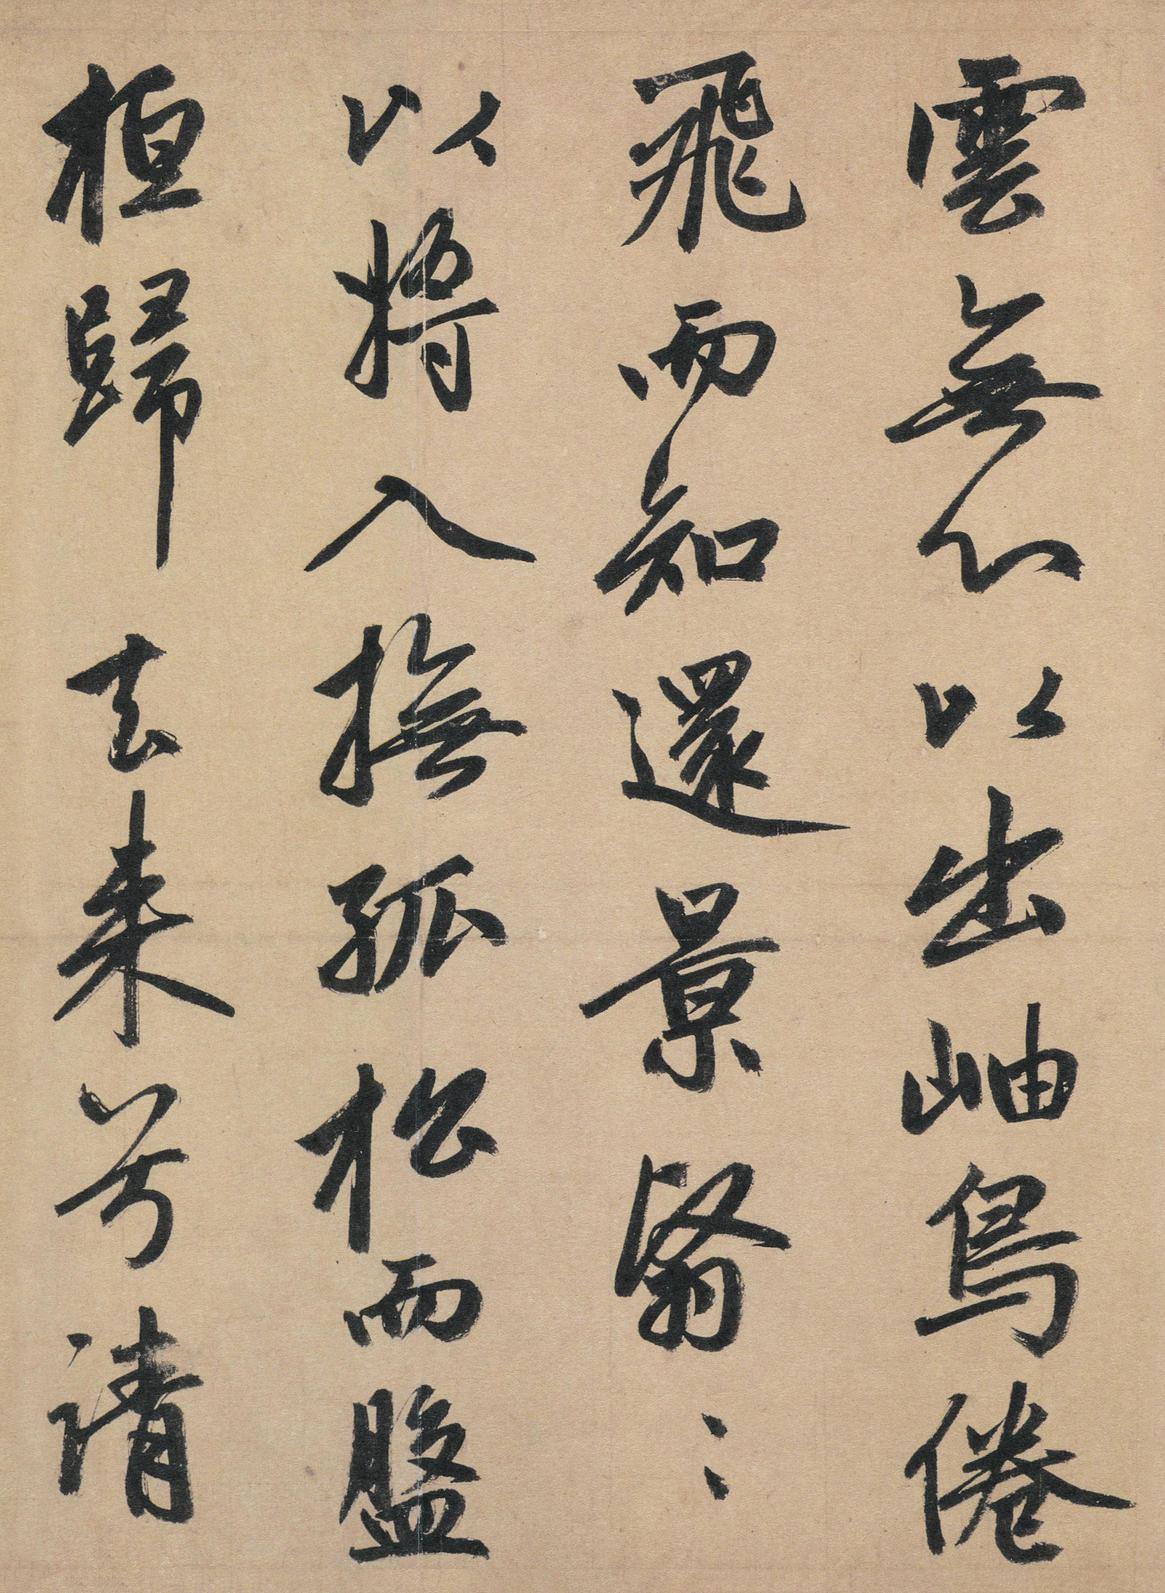 雲無心以出岫鳥倦
飛而知還景翳〻
以將入撫孤松而盤
桓歸去來兮請